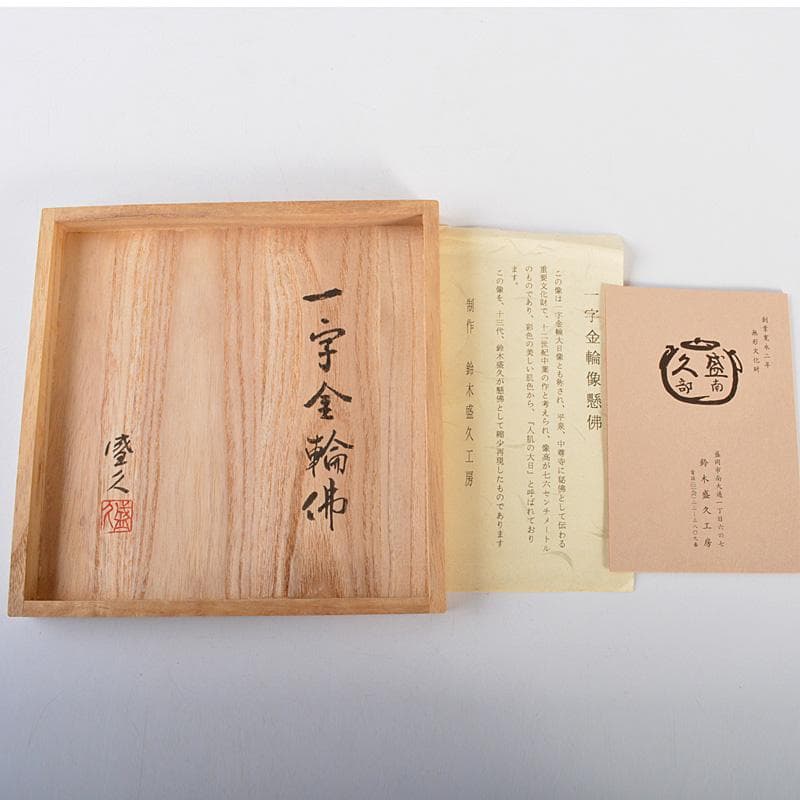 一字金輪佛
盛久
盛久
一字金輪像懸佛
この像は一字金輪大日像とも称され、平泉、中尊寺に秘佛として伝わる
重要文化財で、十二世紀中葉の作と考えられ、像高が七六センチメートル
のものであり、彩色の美しい肌色から、「人肌の大日」と呼ばれており
ます。
この像を、十三代、鈴木盛久が懸佛として縮少再現したものであります
制作　鈴木盛久工房
創業寛永二年
無形文化財
盛久
南部
盛岡市南大通一丁目六の七
鈴木盛久工房